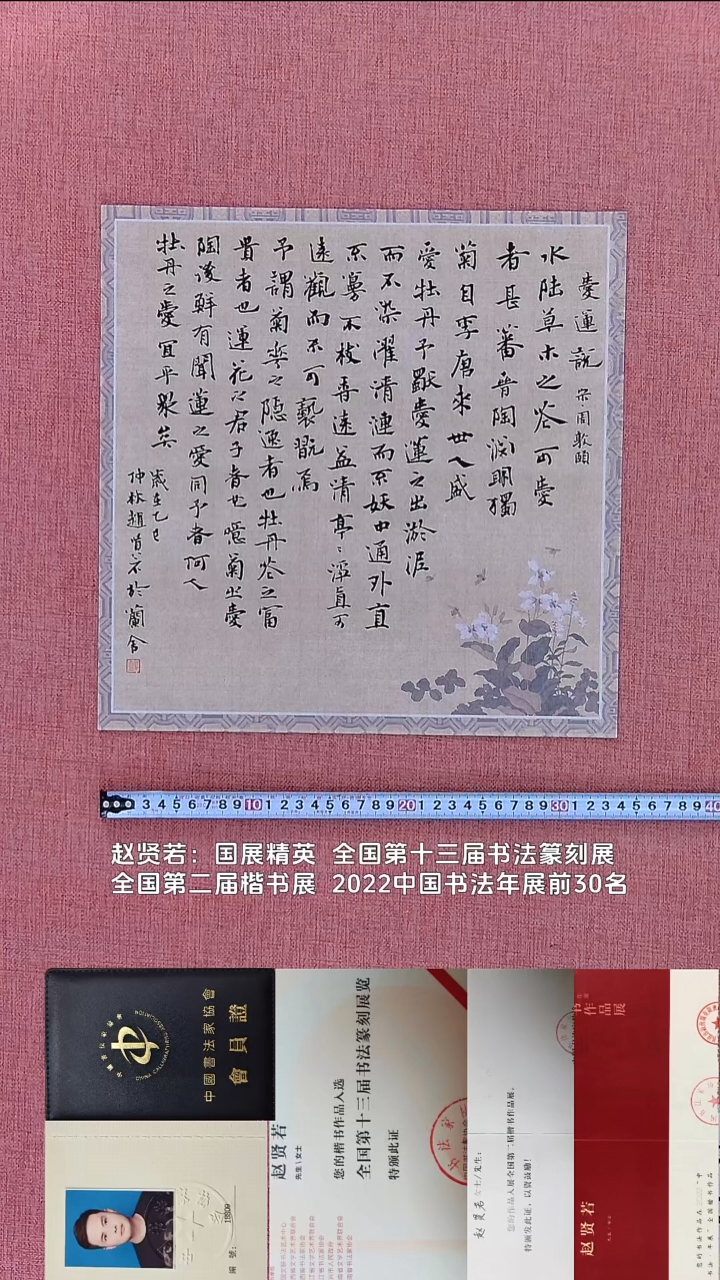 愛蓮説 宋周敦頤
水陸草木之花可愛
者甚蕃晉陶渊明獨
菊自李唐來世人盛
愛牡丹予獨愛蓮之出淤泥
而不染濯清漣而不妖中通外直
不蔓不枝香遠益清亭〻淨植可
遠觀而不可褻翫焉
予謂菊花之隐逸者也牡丹花之富
貴者也蓮花之君子者也噫菊之愛
陶後鮮有聞蓮之愛同予者何人
牡丹之愛宜乎衆矣
歲在乙巳
仲秋趙賢若於蘭舍
3 4 5 6 7 8 9 10 1 2 3 4 5 6 7 8 9 20 1 2 3 4 5 6 7 8 9 30 1 2 3 4 5 6 7 8 9 40
赵贤若：国展精英 全国第十三届书法篆刻展
全国第二届楷书展 2022中国书法年展前30名
中國書法家協會
會員證
CHINA CALLIGRAPHERS
编號
赵贤若
先生\女士
您的楷书作品入选
全国第十三届书法篆刻展览
特颁此证
赵贤若女士/先生：
您的作品入展全国第二届楷书作品展，
特颁发此证，以资鼓励！
作品展
赵贤若